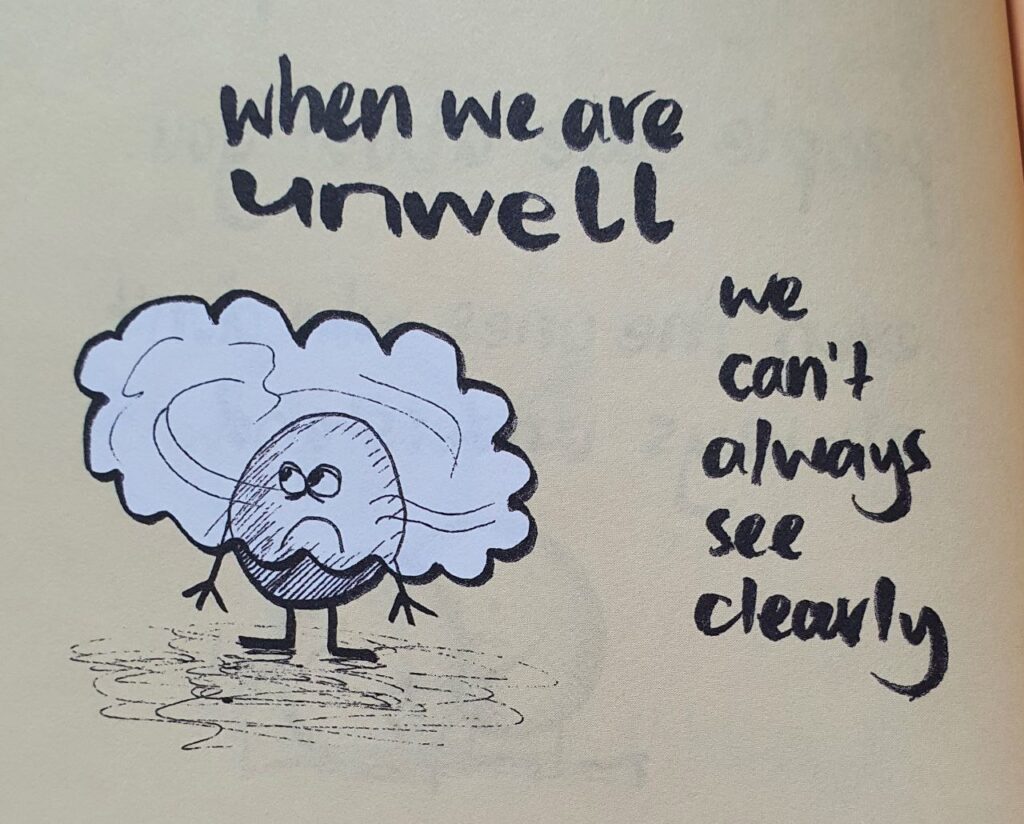 when we are
unwell
we
can't
always
see
clearly